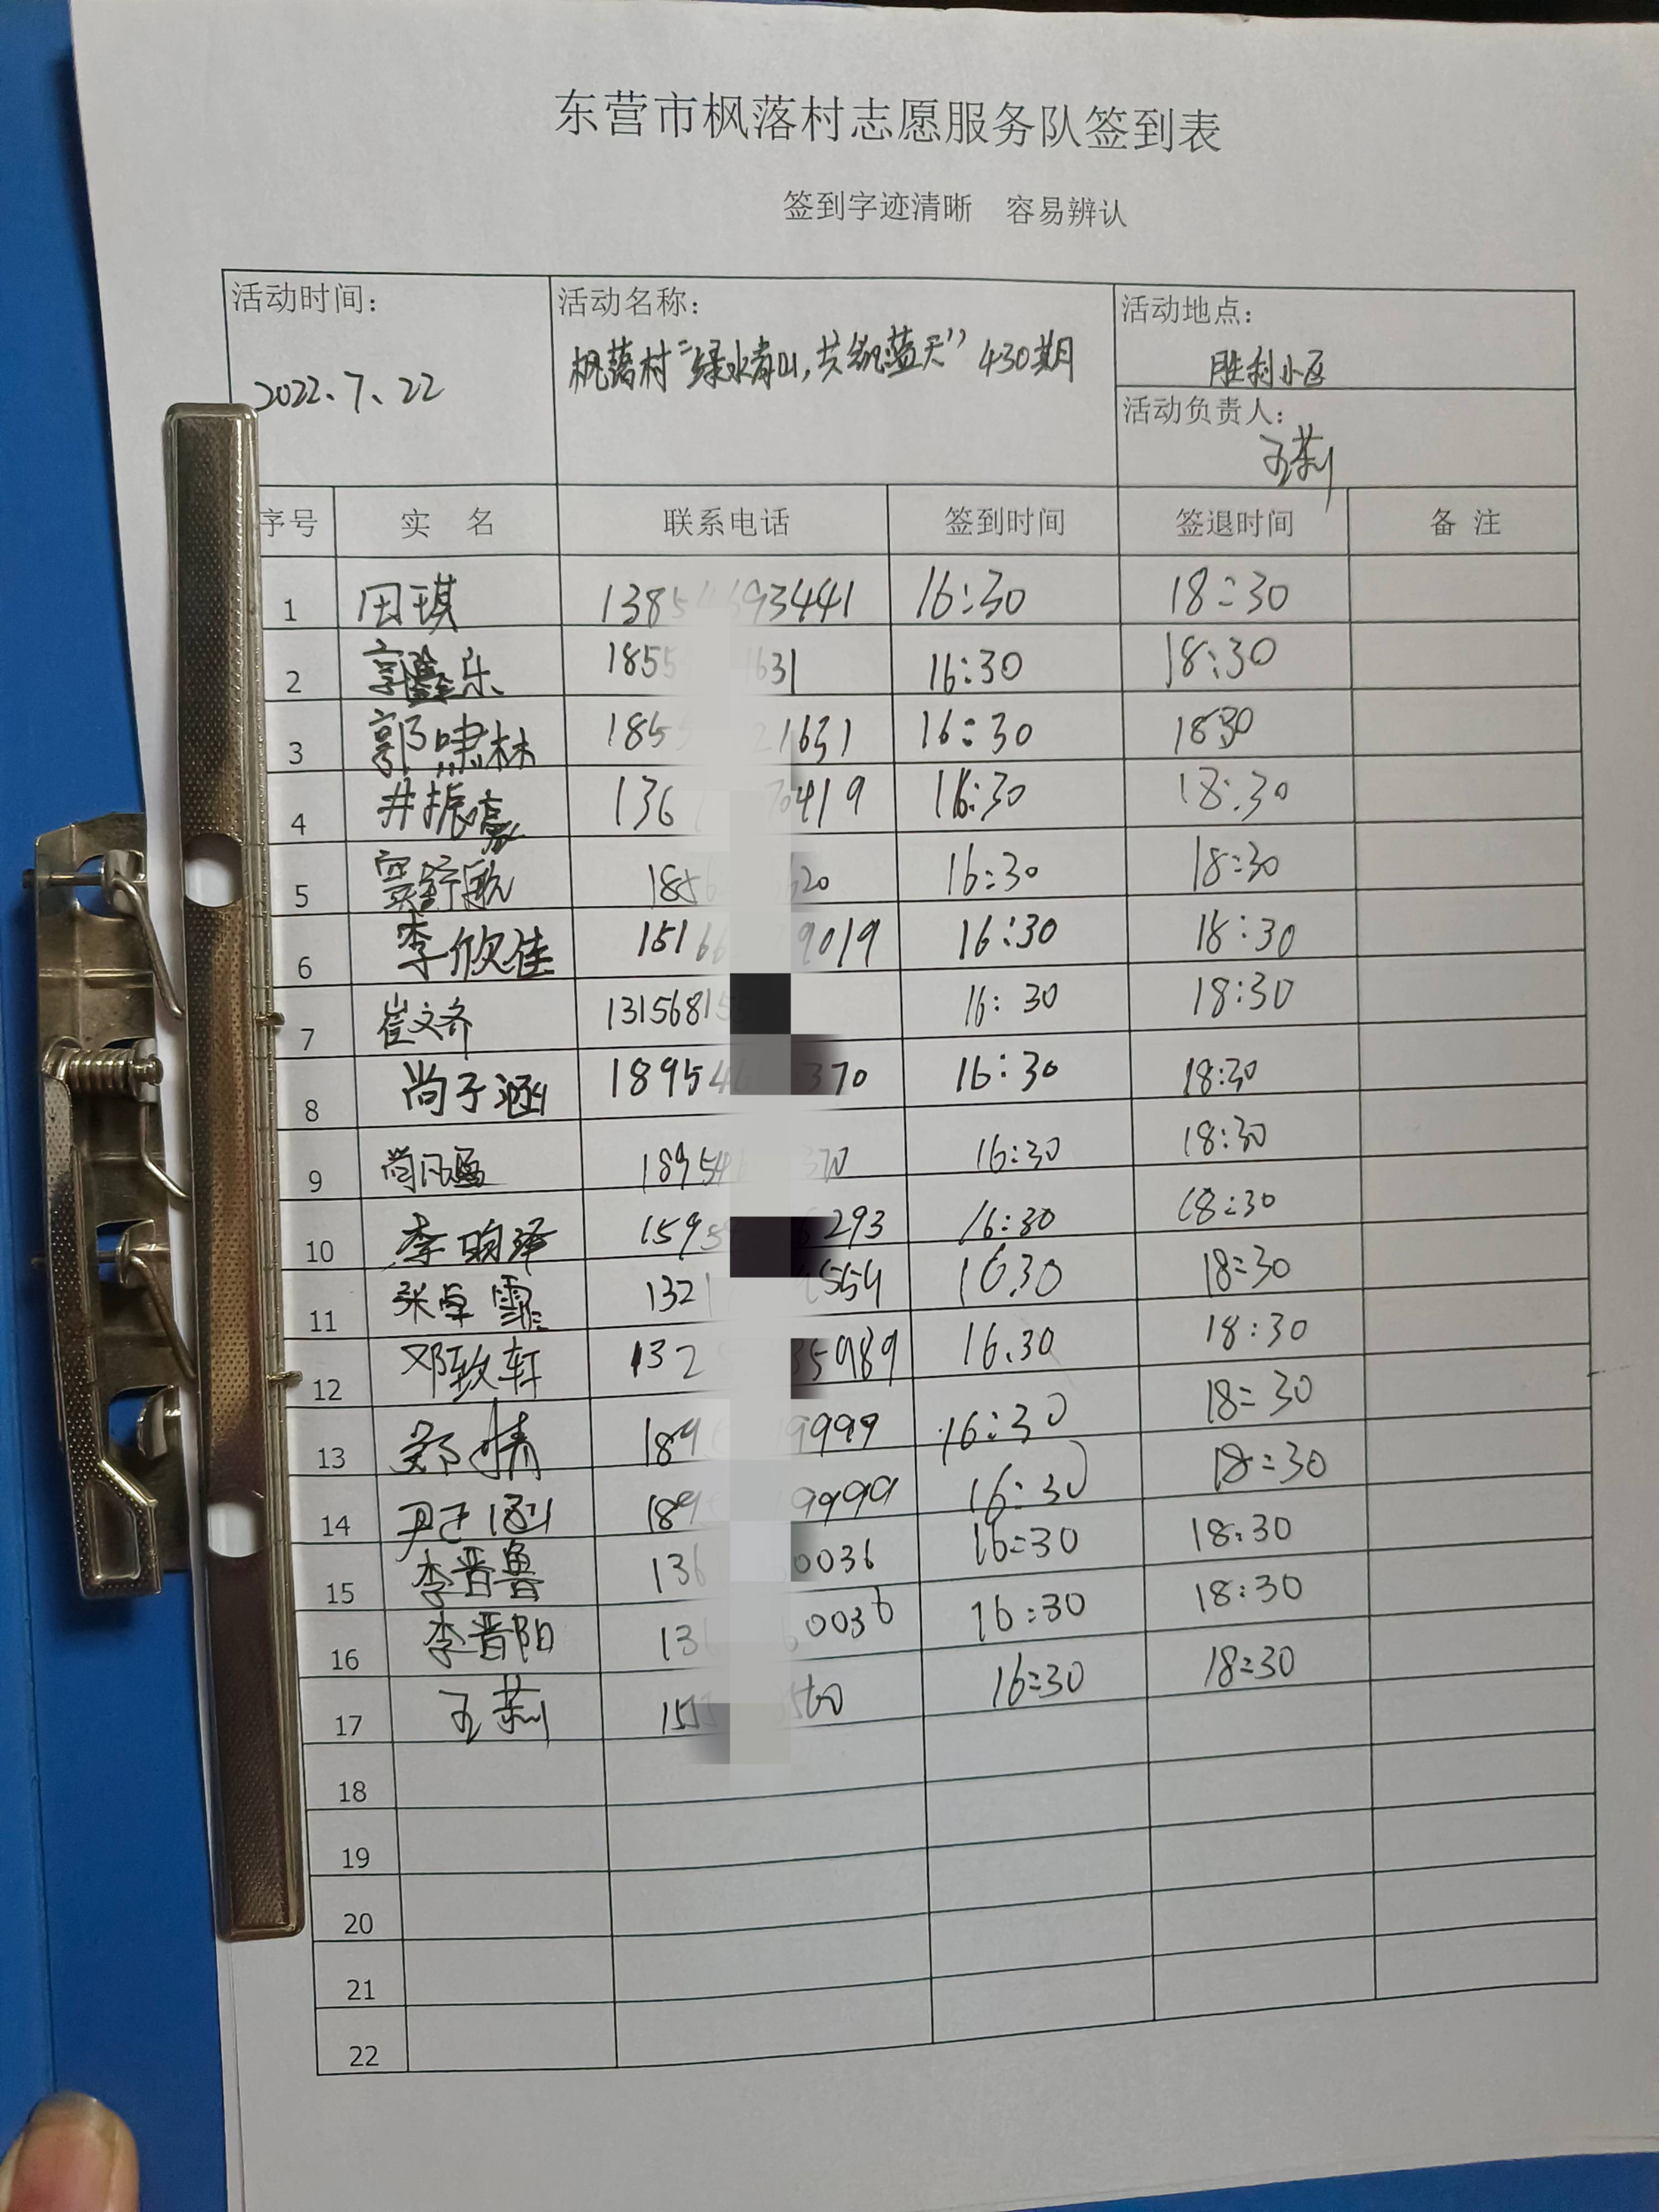 东营市枫落村志愿服务队签到表
签到字迹清晰 容易辨认
活动时间: 活动名称: 活动地点:
2022、7、22 枫落村“绿水青山,共筑蓝天” 430期 胜利小区
活动负责人:
王莉
序号 实 名 联系电话 签到时间 签退时间 备 注
1 田琪 138 93441 16:30 18:30
2 郭鑫乐 1855 1631 16:30 18:30
3 郭啸林 185 21631 16:30 1830
4 井振 136 0419 16:30 18:30
5 窦舒歌 185 20 16:30 18:30
6 李欣佳 1516 9019 16:30 18:30
7 崔文齐 1315681 16:30 18:30
8 尚子涵 18954 370 16:30 18:30
9 尚 18954 370 16:30 18:30
10 李昀泽 1595 6293 16:30 18:30
11 张卓霏 132 554 16.30 18:30
12 邓致轩 132 35989 16.30 18:30
13 郑倩 189 9999 16:30 18:30
14 尹子涵 189 9999 16:30 18:30
15 李晋鲁 136 0036 16:30 18:30
16 李晋阳 136 0036 16:30 18:30
17 王莉 15 560 16:30 18:30
18
19
20
21
22